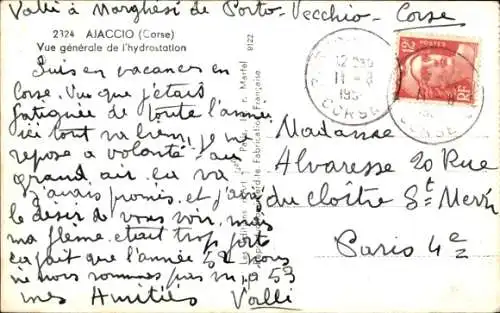 Valli à Marghési de Porto-Vecchio - Corse
2324 AJACCIO (Corse)
Vue générale de l'hydrostation
Suis en vacances en
Corse. Vu que j'étais
fatiguée de toute l'année
ici tout va bien, je me
repose à volonté au
grand air. ça va
j'avais promis et j'ai
le désir de vous voir, mais
ma flème était trop fort
ça fait que l'année 52 nous
ne nous sommes pas vu, 53
mes Amitiés Valli
9122
12
POSTES
RF
CORSE
Madame
Alvaresse 20 Rue
du cloître St Merri
Paris 4e